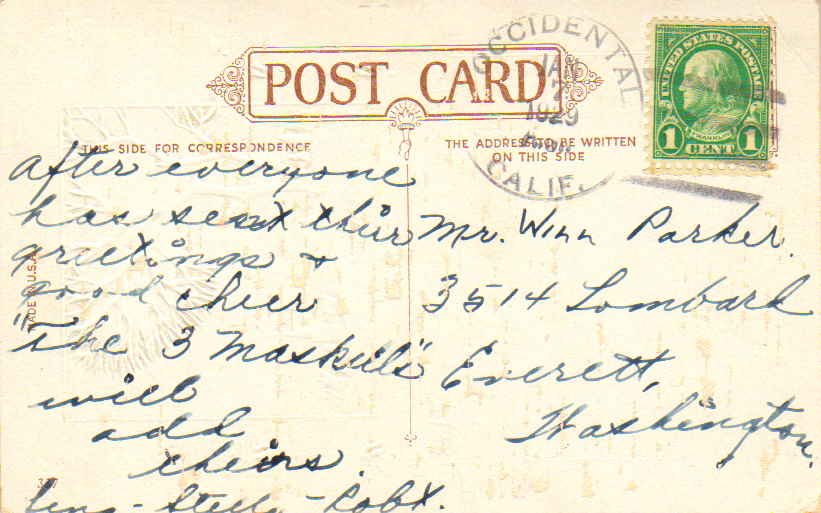 POST CARD
OCCIDENTAL
JAN
2
1929
CALIF.
UNITED STATES POSTAGE
FRANKLIN
1 CENT 1
THIS SIDE FOR CORRESPONDENCE
THE ADDRESS TO BE WRITTEN
ON THIS SIDE
after everyone
has sent thier
greetings &
good cheer
"The 3 Maskell's"
will
add
theirs.
Mr. Winn Parker.
3514 Lombard
Everett,
Washington.
MADE IN U.S.A.